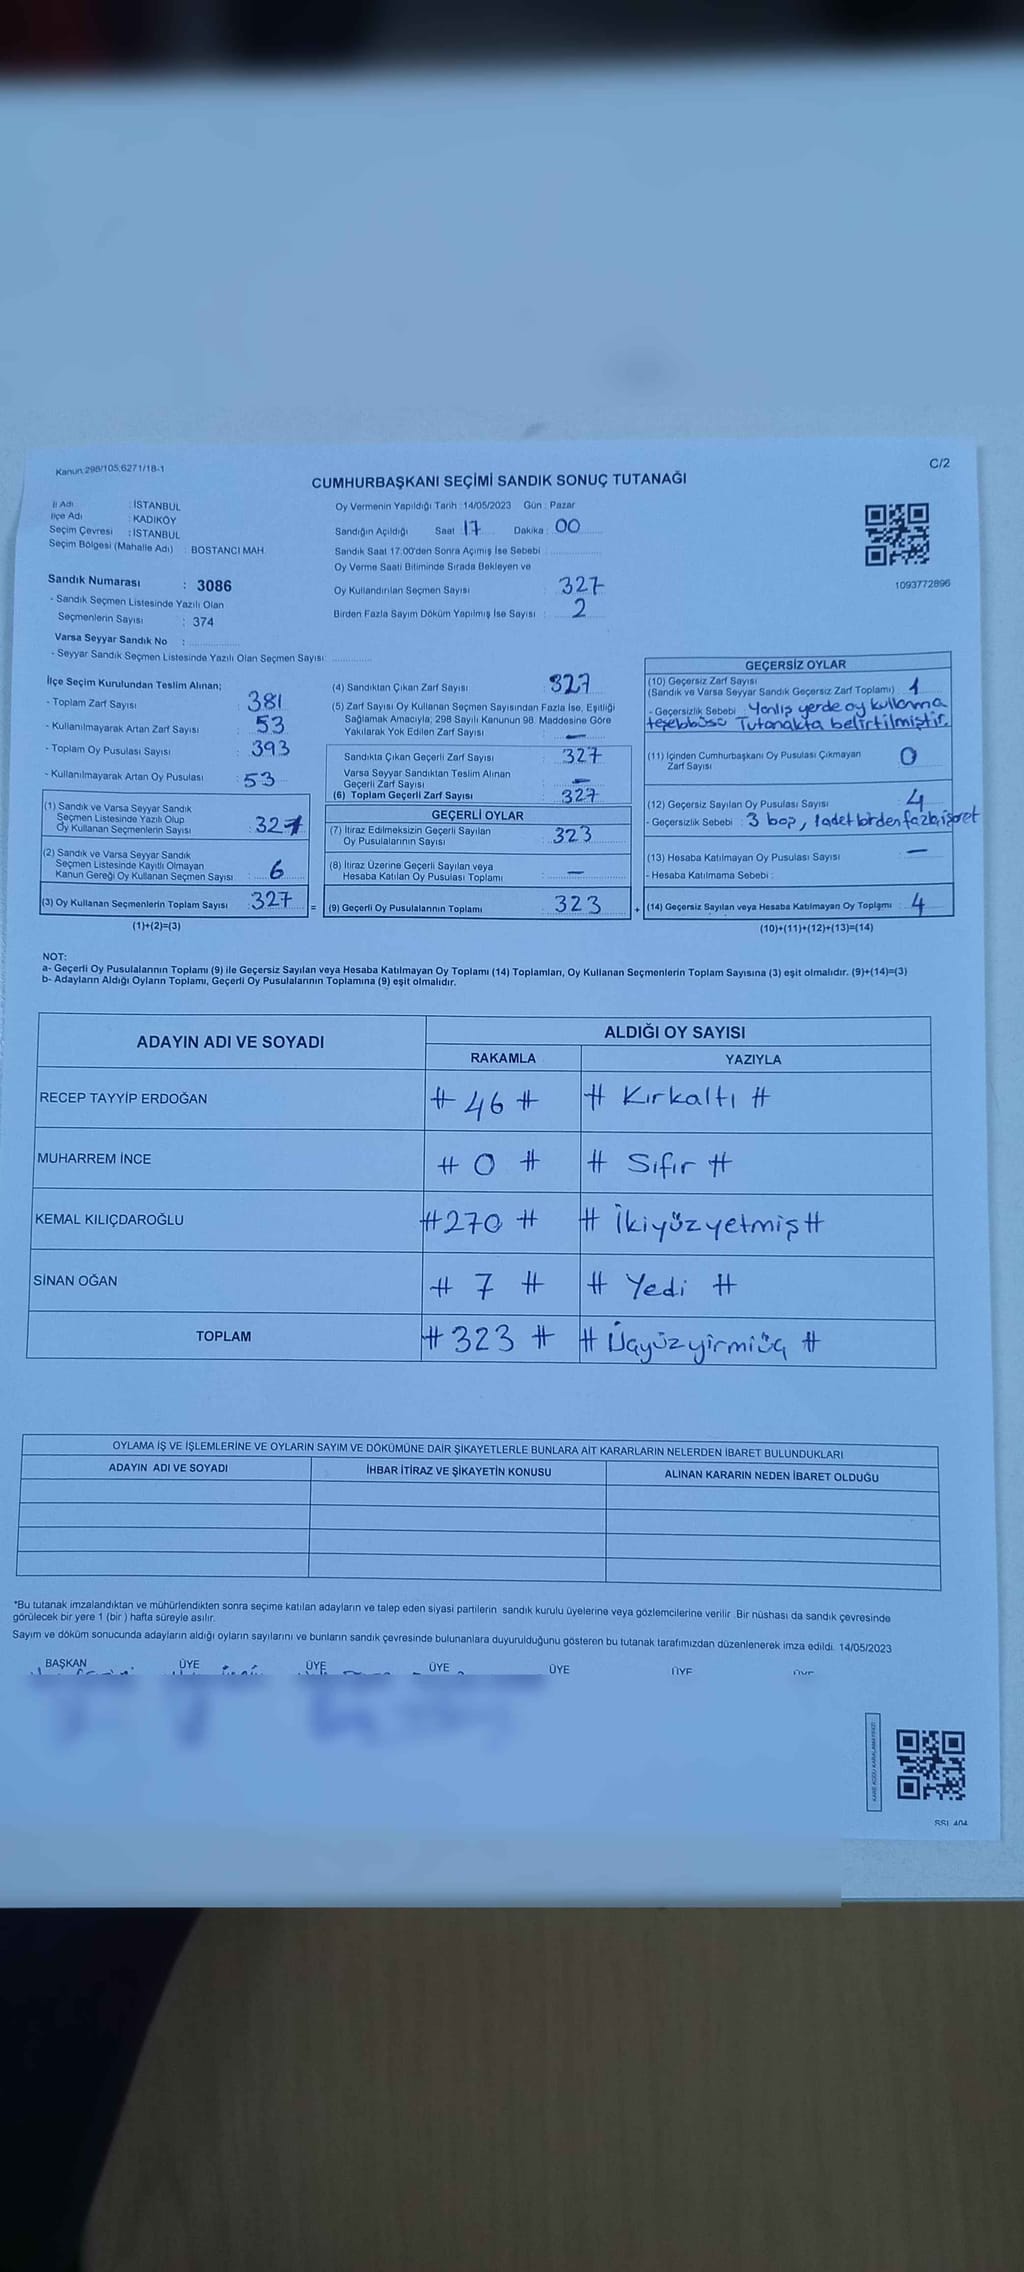 Kanun 298/105,6271/18-1
C/2
CUMHURBAŞKANI SEÇİMİ SANDIK SONUÇ TUTANAĞI
İl Adı : İSTANBUL
İlçe Adı : KADIKÖY
Seçim Çevresi : İSTANBUL
Seçim Bölgesi (Mahalle Adı) : BOSTANCI MAH.
Sandık Numarası : 3086
- Sandık Seçmen Listesinde Yazılı Olan
Seçmenlerin Sayısı : 374
Varsa Seyyar Sandık No :
- Seyyar Sandık Seçmen Listesinde Yazılı Olan Seçmen Sayısı:
Oy Vermenin Yapıldığı Tarih :14/05/2023 Gün : Pazar
Sandığın Açıldığı Saat : 17 Dakika : 00
Sandık Saat 17.00'den Sonra Açımış İse Sebebi :
Oy Verme Saati Bitiminde Sırada Bekleyen ve
Oy Kullandırılan Seçmen Sayısı : 327
Birden Fazla Sayım Döküm Yapılmış İse Sayısı : 2
1093772896
İlçe Seçim Kurulundan Teslim Alınan;
- Toplam Zarf Sayısı : 381
- Kullanılmayarak Artan Zarf Sayısı : 53
- Toplam Oy Pusulası Sayısı : 393
- Kullanılmayarak Artan Oy Pusulası : 53
(1) Sandık ve Varsa Seyyar Sandık
Seçmen Listesinde Yazılı Olup
Oy Kullanan Seçmenlerin Sayısı : 327
(2) Sandık ve Varsa Seyyar Sandık
Seçmen Listesinde Kayıtlı Olmayan
Kanun Gereği Oy Kullanan Seçmen Sayısı : 6
(3) Oy Kullanan Seçmenlerin Toplam Sayısı : 327
(1)+(2)=(3)
=
(4) Sandıktan Çıkan Zarf Sayısı : 327
(5) Zarf Sayısı Oy Kullanan Seçmen Sayısından Fazla İse, Eşitliği
Sağlamak Amacıyla; 298 Sayılı Kanunun 98. Maddesine Göre
Yakılarak Yok Edilen Zarf Sayısı : —
Sandıkta Çıkan Geçerli Zarf Sayısı : 327
Varsa Seyyar Sandıktan Teslim Alınan
Geçerli Zarf Sayısı : —
(6) Toplam Geçerli Zarf Sayısı : 327
GEÇERLİ OYLAR
(7) İtiraz Edilmeksizin Geçerli Sayılan
Oy Pusulalarının Sayısı : 323
(8) İtiraz Üzerine Geçerli Sayılan veya
Hesaba Katılan Oy Pusulası Toplamı : —
(9) Geçerli Oy Pusulalarının Toplamı : 323
+
GEÇERSİZ OYLAR
(10) Geçersiz Zarf Sayısı
(Sandık ve Varsa Seyyar Sandık Geçersiz Zarf Toplamı) : 1
- Geçersizlik Sebebi : Yanlış yerde oy kullanma
teşebbüsü Tutanakta belirtilmiştir.
(11) İçinden Cumhurbaşkanı Oy Pusulası Çıkmayan
Zarf Sayısı : 0
(12) Geçersiz Sayılan Oy Pusulası Sayısı : 4
- Geçersizlik Sebebi : 3 boş, 1 adet birden fazla işaret
(13) Hesaba Katılmayan Oy Pusulası Sayısı : —
- Hesaba Katılmama Sebebi :
(14) Geçersiz Sayılan veya Hesaba Katılmayan Oy Toplamı : 4
(10)+(11)+(12)+(13)=(14)
NOT:
a- Geçerli Oy Pusulalarının Toplamı (9) ile Geçersiz Sayılan veya Hesaba Katılmayan Oy Toplamı (14) Toplamları, Oy Kullanan Seçmenlerin Toplam Sayısına (3) eşit olmalıdır. (9)+(14)=(3)
b- Adayların Aldığı Oyların Toplamı, Geçerli Oy Pusulalarının Toplamına (9) eşit olmalıdır.
ADAYIN ADI VE SOYADI
ALDIĞI OY SAYISI
RAKAMLA YAZIYLA
RECEP TAYYİP ERDOĞAN # 46 # # Kırkaltı #
MUHARREM İNCE # 0 # # Sıfır #
KEMAL KILIÇDAROĞLU #270 # # İkiyüzyetmiş#
SİNAN OĞAN # 7 # # Yedi #
TOPLAM #323 # # Üçyüzyirmiüç #
OYLAMA İŞ VE İŞLEMLERİNE VE OYLARIN SAYIM VE DÖKÜMÜNE DAİR ŞİKAYETLERLE BUNLARA AİT KARARLARIN NELERDEN İBARET BULUNDUKLARI
ADAYIN ADI VE SOYADI İHBAR İTİRAZ VE ŞİKAYETİN KONUSU ALINAN KARARIN NEDEN İBARET OLDUĞU
*Bu tutanak imzalandıktan ve mühürlendikten sonra seçime katılan adayların ve talep eden siyasi partilerin sandık kurulu üyelerine veya gözlemcilerine verilir. Bir nüshası da sandık çevresinde
görülecek bir yere 1 (bir ) hafta süreyle asılır.
Sayım ve döküm sonucunda adayların aldığı oyların sayılarını ve bunların sandık çevresinde bulunanlara duyurulduğunu gösteren bu tutanak tarafımızdan düzenlenerek imza edildi. 14/05/2023
BAŞKAN ÜYE ÜYE ÜYE ÜYE ÜYE ÜYE